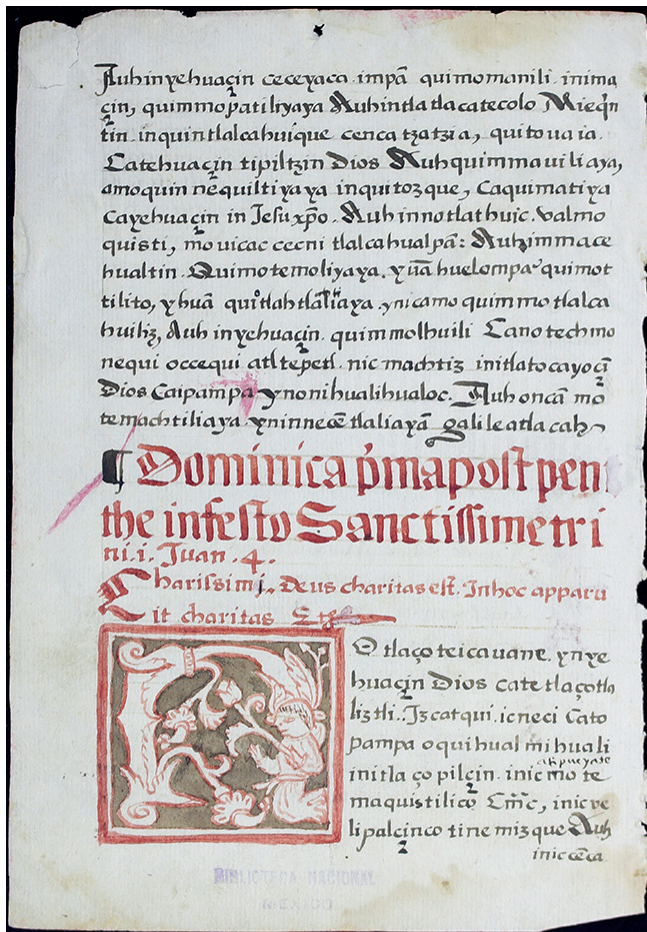 Auh in yehuaçin ceceyaca impã quimomanili inima
çin, quimmopatiliyaya Auh intla tlacatecolo Mieqn
tin inquin tlalcahuique cenca tzatzia, quitouaia.
Catehuaçin tipiltzin Dios Auh quimmauiliaya,
amo quin nequiltiyaya inquitozque, Caquimatiya
Cayehuaçin in Jesu xpo. Auh innotlathuic. valmo
quisti, mouicac cecni tlalcahualpã: Auh immace
hualtin. Quimotemoliyaya. yuã huel ompa quimot
tilito, yhuã quitlahtlaliaya. ynicamo quimmotlalca
huiliz, Auh inyehuaçin quimmolhuili Cano techmo
nequi occequi altepetl. nic machtiz initlatocayoçã
Dios Caipampa ynonihualihualoc. Auh oncã mo
temachtiliaya ynin necētlaliayã galilea tlacah
¶ Dominica pma post pen
the infesto Sanctissime tri
ni. i. Juan. 4.
Charissimi. Deus charitas est. In hoc apparu
it charitas Etc
O tlaço teicauane. yn ye
huaçin Dios cate tlaçotla
liztli. Izcatqui. ic neci Cato
pampa oquihualmihuali
initlaçopilçin. inic mote
maquistilico Cmc, inic ye
lipalcinco tinemizque Auh
inic cēca
BIBLIOTECA NACIONAL
MEXICO